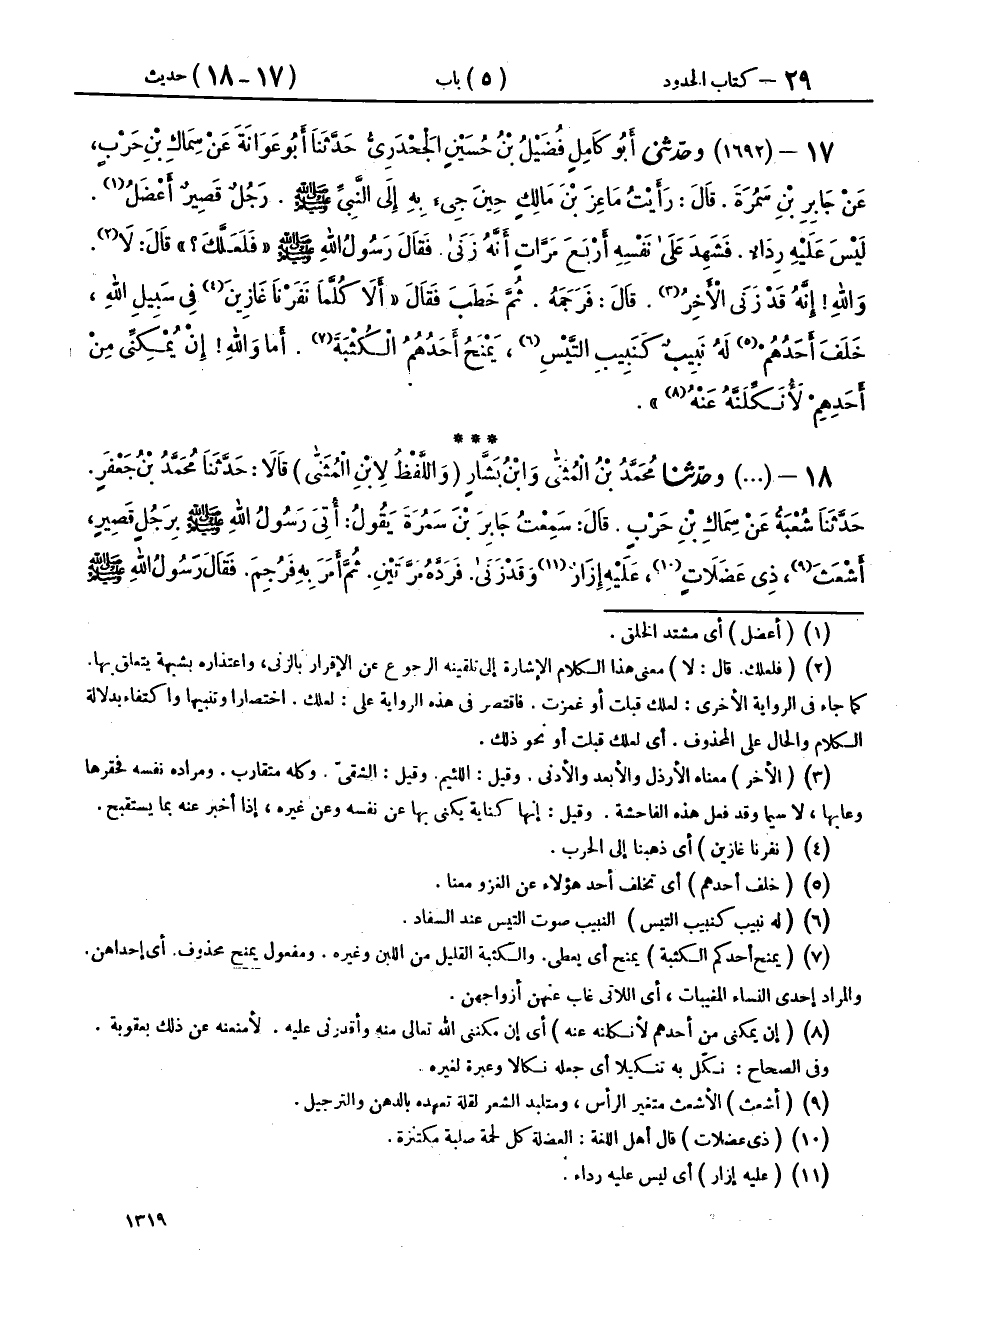 ٢٩ – كتاب الحدود (٥) باب (١٧-١٨) حديث
١٧ – (١٦٩٢) وحَدَّثَنِي أَبُو كَامِلٍ فُضَيْلُ بْنُ حُسَيْنٍ الْجَحْدَرِيُّ حَدَّثَنَا أَبُو عَوَانَةَ عَنْ سِمَاكِ بْنِ حَرْبٍ،
عَنْ جَابِرِ بْنِ سَمُرَةَ . قَالَ : رَأَيْتُ مَاعِزَ بْنَ مَالِكٍ حِينَ جِيءَ بِهِ إِلَى النَّبِيِّ ﷺ . رَجُلٌ قَصِيرٌ أَعْضَلُ(١) .
لَيْسَ عَلَيْهِ رِدَاءٌ . فَشَهِدَ عَلَىٰ نَفْسِهِ أَرْبَعَ مَرَّاتٍ أَنَّهُ زَنَىٰ. فَقَالَ رَسُولُ اللهِ ﷺ « فَلَعَلَّكَ؟ » قَالَ: لَا(٢).
وَاللهِ! إِنَّهُ قَدْ زَنَى الْأَخِرُ(٣) . قَالَ : فَرَجَمَهُ . ثُمَّ خَطَبَ فَقَالَ « أَلَا كُلَّمَا نَفَرْنَا غَازِينَ(٤) فِي سَبِيلِ اللهِ ،
خَلَفَ أَحَدُهُمْ(٥) لَهُ نَبِيبٌ كَنَبِيبِ التَّيْسِ(٦) ، يَمْنَحُ أَحَدُهُمُ الْكُثْبَةَ(٧) . أَمَا وَاللهِ! إِنْ يُمْكِنِّي مِنْ
أَحَدِهِمْ لَأُنَكِّلَنَّهُ عَنْهُ(٨) » .
***
١٨ – (...) وحَدَّثَنَا مُحَمَّدُ بْنُ الْمُثَنَّىٰ وَابْنُ بَشَّارٍ ( وَاللَّفْظُ لِابْنِ الْمُثَنَّىٰ ) قَالَا : حَدَّثَنَا مُحَمَّدُ بْنُ جَعْفَرٍ.
حَدَّثَنَا شُعْبَةُ عَنْ سِمَاكِ بْنِ حَرْبٍ . قَالَ: سَمِعْتُ جَابِرَ بْنَ سَمُرَةَ يَقُولُ: أُتِيَ رَسُولُ اللهِ ﷺ بِرَجُلٍ قَصِيرٍ،
أَشْعَثَ(٩)، ذِي عَضَلَاتٍ(١٠)، عَلَيْهِ إِزَارٌ(١١) وَقَدْ زَنَىٰ. فَرَدَّهُ مَرَّتَيْنِ. ثُمَّ أَمَرَ بِهِ فَرُجِمَ. فَقَالَ رَسُولُ اللهِ ﷺ
(١) ( أعضل ) أى مشتد الخلق .
(٢) ( فلعلك. قال : لا ) معنى هذا الكلام الإشارة إلى تلقينه الرجوع عن الإقرار بالزنى، واعتذاره بشبهة يتعلق بها.
كما جاء فى الرواية الأخرى : لعلك قبلت أو غمزت . فاقتصر فى هذه الرواية على : لعلك . اختصارا وتنبيها واكتفاء بدلالة
الكلام والحال على المحذوف . أى لعلك قبلت أو نحو ذلك .
(٣) ( الأخر ) معناه الأرذل والأبعد والأدنى . وقيل : اللئيم. وقيل : الشقىّ . وكله متقارب . ومراده نفسه فحقرها
وعابها ، لا سيما وقد فعل هذه الفاحشة . وقيل : إنها كناية يكنى بها عن نفسه وعن غيره ، إذا أخبر عنه بما يستقبح .
(٤) ( نفرنا غازين ) أى ذهبنا إلى الحرب .
(٥) ( خلف أحدهم ) أى تخلف أحد هؤلاء عن الغزو معنا .
(٦) ( له نبيب كنبيب التيس ) النبيب صوت التيس عند السفاد .
(٧) ( يمنح أحدكم الكثبة ) يمنح أى يعطى. والكثبة القليل من اللبن وغيره . ومفعول يمنح محذوف. أى إحداهن.
والمراد إحدى النساء المغيبات ، أى اللاتى غاب عنهن أزواجهن .
(٨) ( إن يمكنى من أحدهم لأنكلنه عنه ) أى إن مكننى الله تعالى منه وأقدرنى عليه . لأمنعنه عن ذلك بعقوبة .
وفى الصحاح : نكّل به تنكيلا أى جعله نكالا وعبرة لغيره .
(٩) ( أشعث ) الأشعث متغير الرأس ، ومتلبد الشعر لقلة تعهده بالدهن والترجيل .
(١٠) ( ذى عضلات ) قال أهل اللغة : العضلة كل لحمة صلبة مكتنزة .
(١١) ( عليه إزار ) أى ليس عليه رداء .
١٣١٩